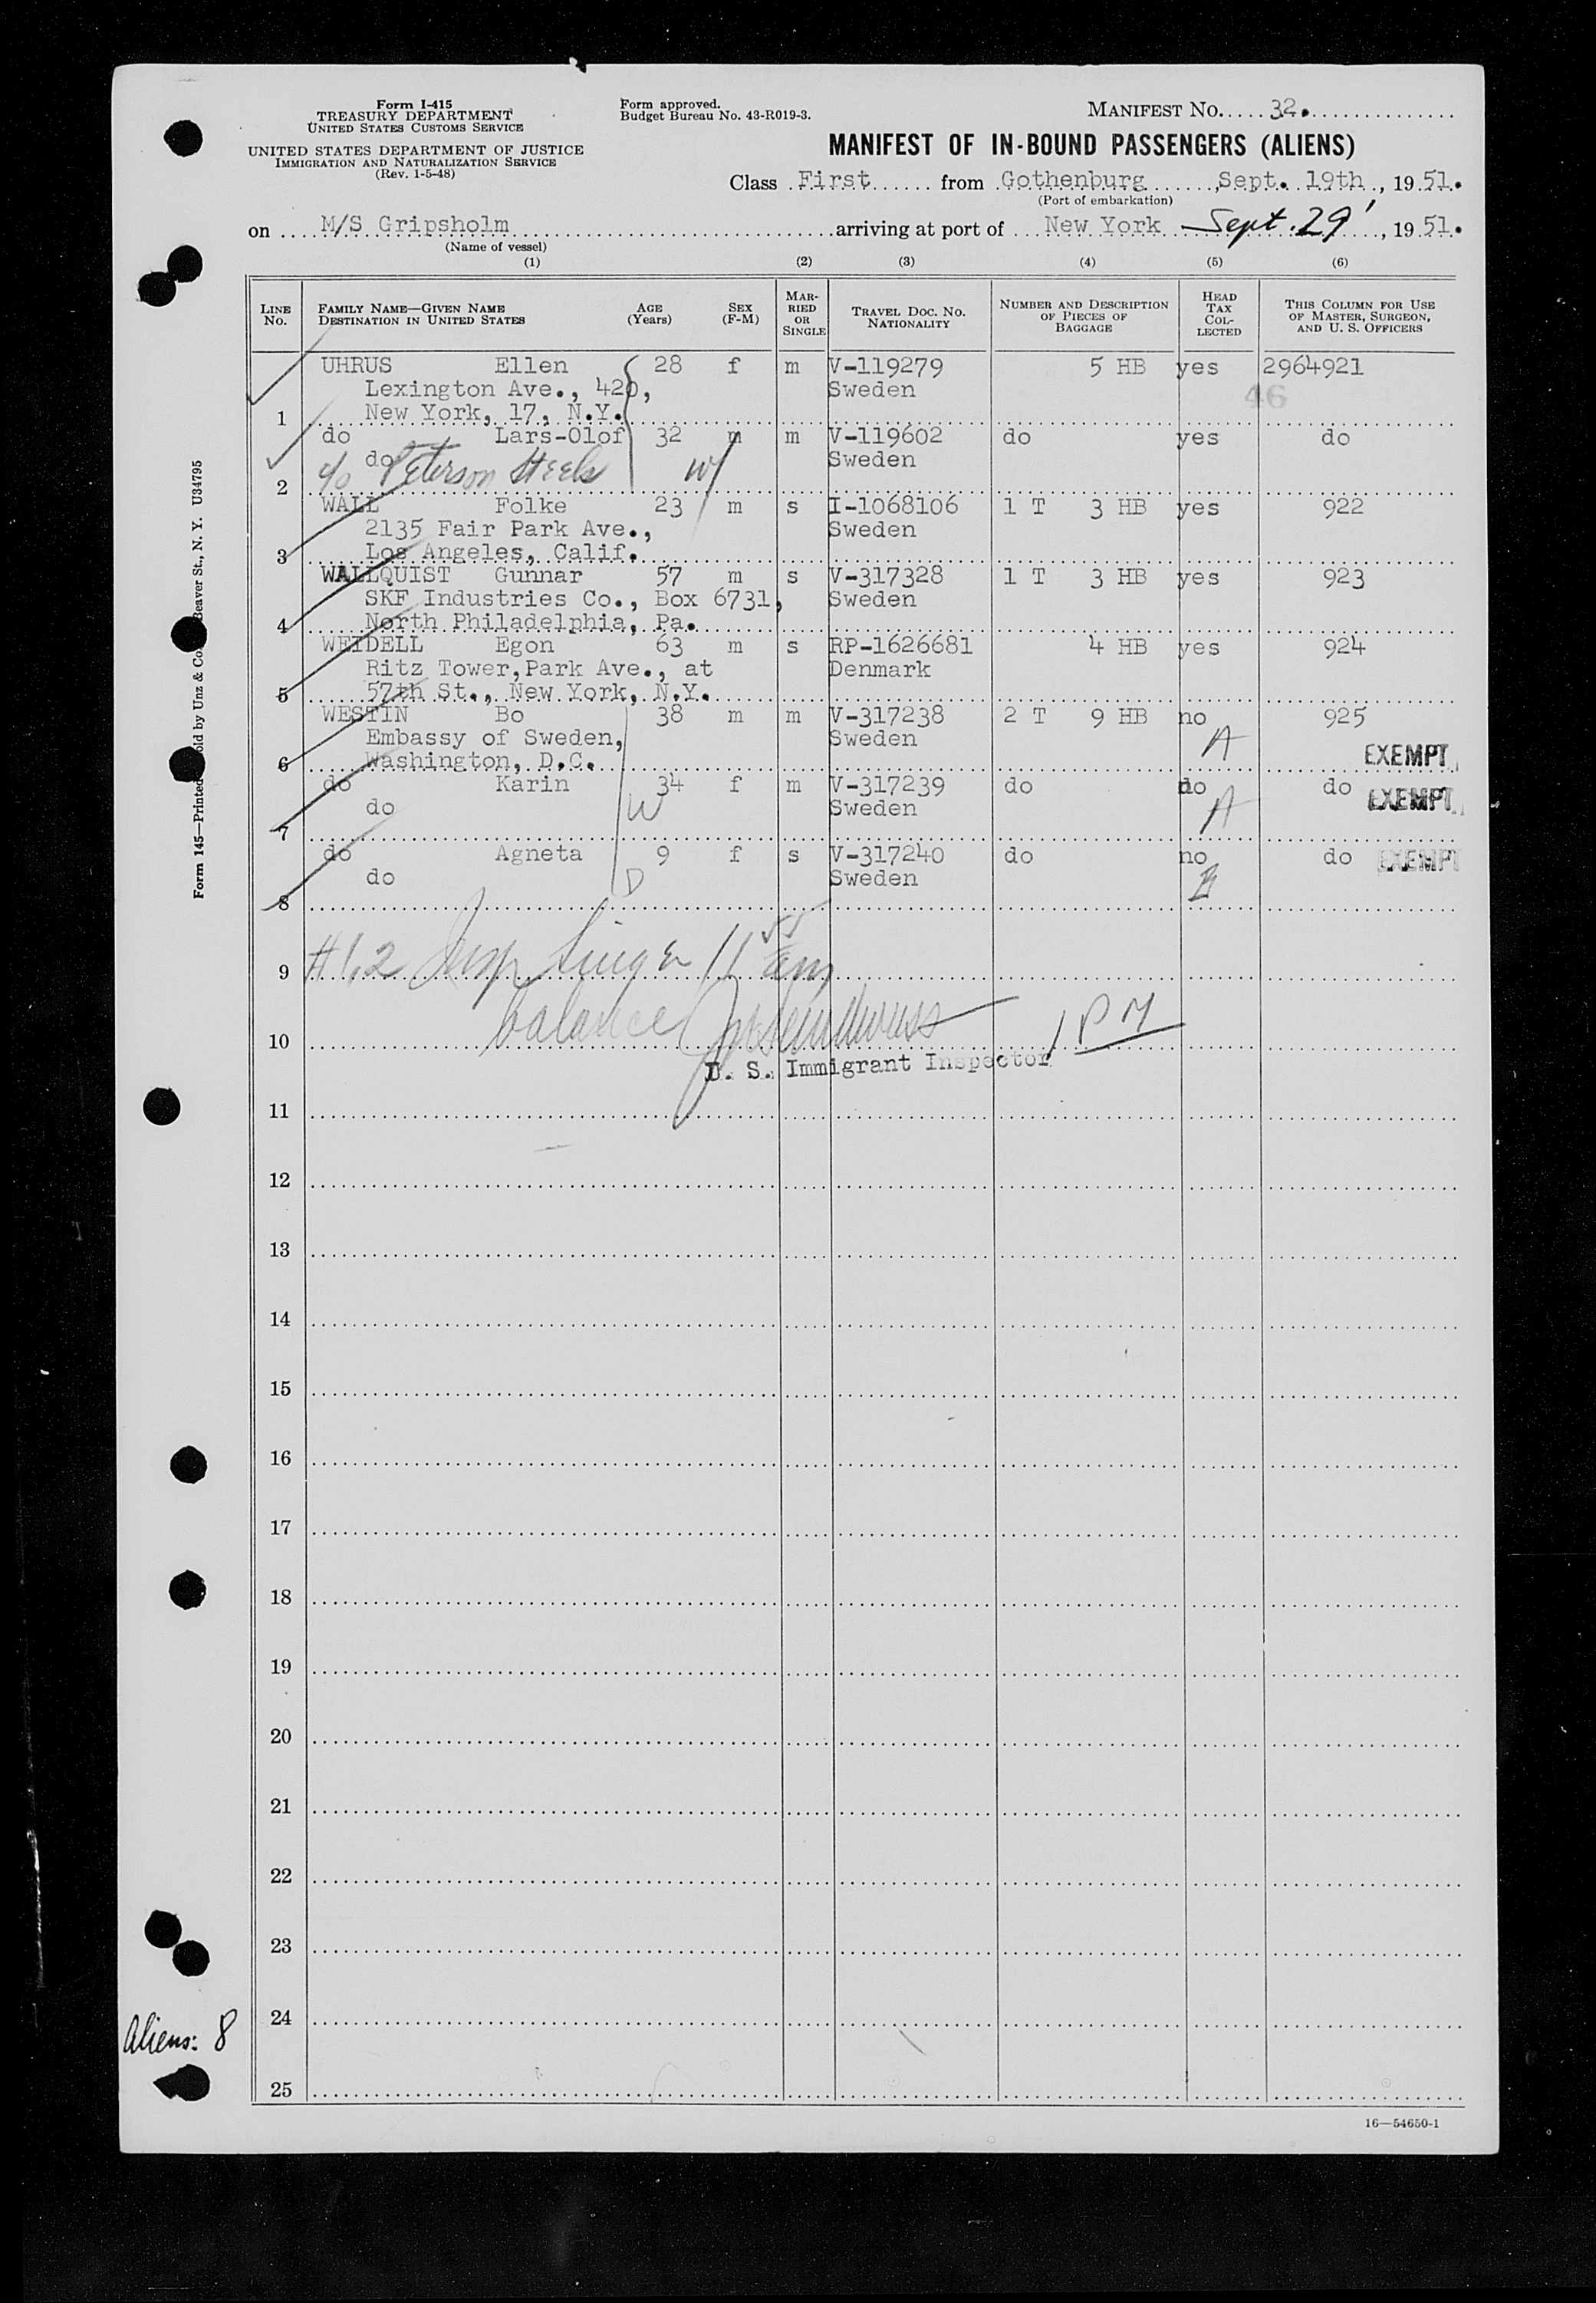 Form I-415
TREASURY DEPARTMENT
UNITED STATES CUSTOMS SERVICE
UNITED STATES DEPARTMENT OF JUSTICE
IMMIGRATION AND NATURALIZATION SERVICE
(Rev. 1-5-48)
Form approved.
Budget Bureau No. 43-R019-3.
MANIFEST NO. 32.
MANIFEST OF IN-BOUND PASSENGERS (ALIENS)
Class First from Gothenburg, Sept. 19th, 1951.
(Port of embarkation)
on M/S Gripsholm arriving at port of New York Sept. 29, 1951.
(Name of vessel)
(1) (2) (3) (4) (5) (6)
LINE No. FAMILY NAME—GIVEN NAME DESTINATION IN UNITED STATES AGE (Years) SEX (F-M) MARRIED OR SINGLE TRAVEL DOC. NO. NATIONALITY NUMBER AND DESCRIPTION OF PIECES OF BAGGAGE HEAD TAX COLLECTED THIS COLUMN FOR USE OF MASTER, SURGEON, AND U. S. OFFICERS
UHRUS Ellen 28 f m V-119279 5 HB yes 2964921
Lexington Ave., 420, Sweden 46
1 New York, 17, N.Y.
do Lars-Olof 32 m m V-119602 do yes do
do Sweden
2 c/o Peterson Steels W
WALL Folke 23 m s I-1068106 1 T 3 HB yes 922
2135 Fair Park Ave., Sweden
3 Los Angeles, Calif.
WALLQUIST Gunnar 57 m s V-317328 1 T 3 HB yes 923
SKF Industries Co., Box 6731, Sweden
4 North Philadelphia, Pa.
WEIDELL Egon 63 m s RP-1626681 4 HB yes 924
Ritz Tower,Park Ave., at Denmark
5 57th St., New York, N.Y.
WESTIN Bo 38 m m V-317238 2 T 9 HB no 925
Embassy of Sweden, Sweden A EXEMPT
6 Washington, D.C.
do Karin 34 f m V-317239 do no do EXEMPT
do W Sweden A
7
do Agneta 9 f s V-317240 do no do EXEMPT
do D Sweden
8
9 #1,2 Insp 11 55 am
10 balance 1 PM
U. S. Immigrant Inspector
11
12
13
14
15
16
17
18
19
20
21
22
23
24
25
Aliens: 8
16—54650-1
Form 145—Printed
old by Unz & Co
Beaver St., N. Y. U34795